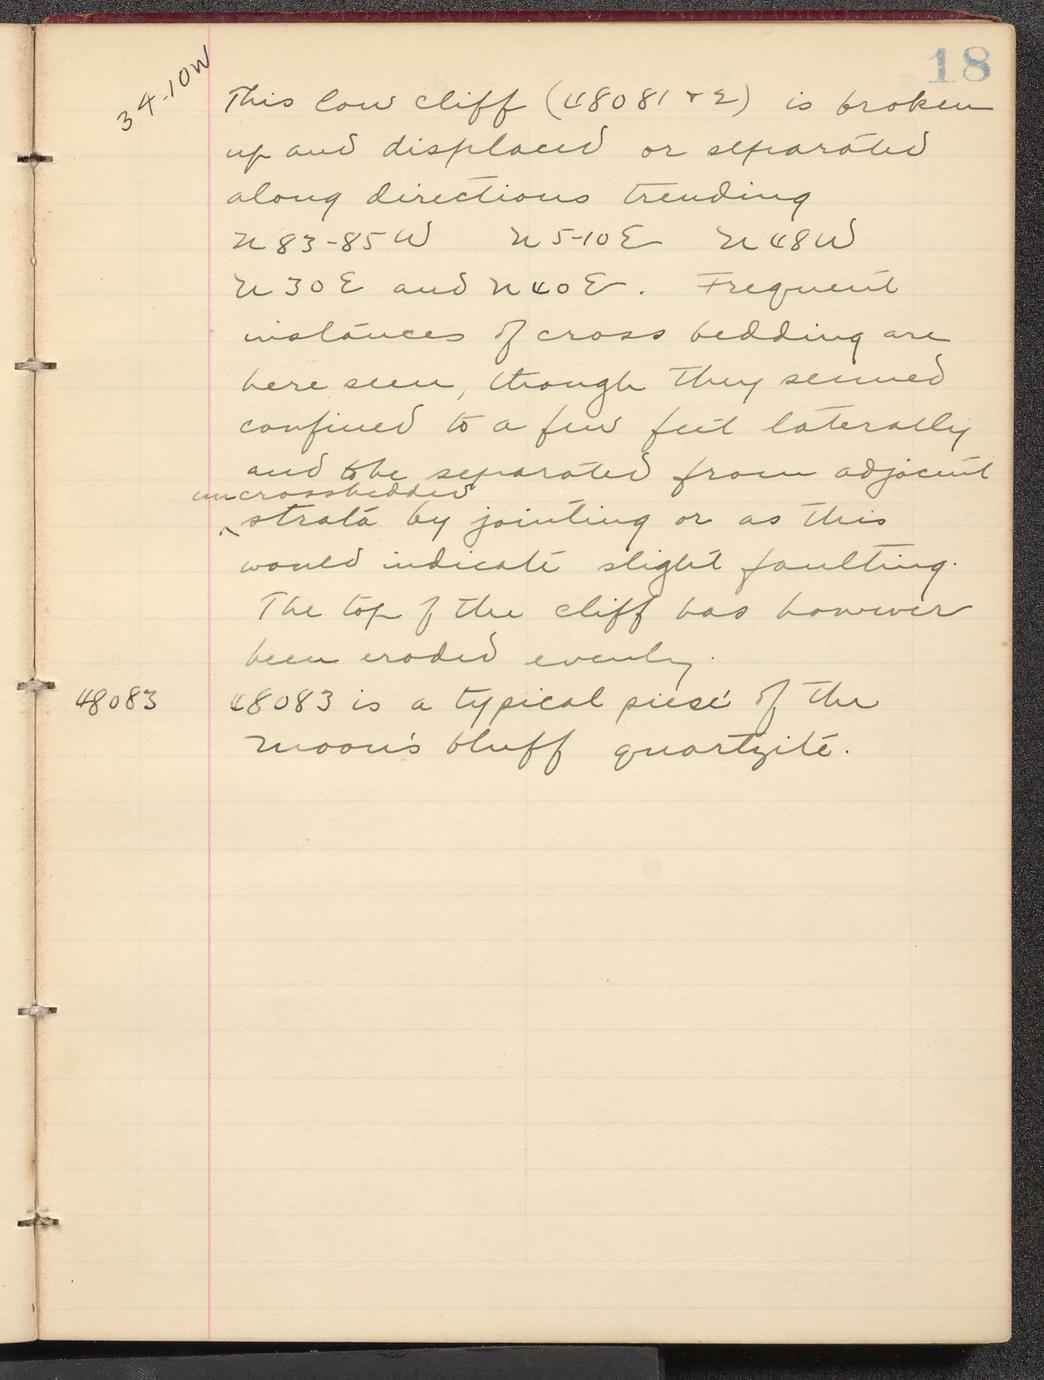 18
34-10W
This low cliff (48081 + 2) is broken
up and displaced or separated
along directions trending
N83-85W N5-10E N48W
N30E and N40E. Frequent
instances of cross bedding are
here seen, though they seemed
confined to a few feet laterally
and to be separated from adjacent
uncrossbedded
^ strata by jointing or as this
would indicate slight faulting.
The top of the cliff has however
been eroded evenly.
48083 48083 is a typical piese of the
Moon's bluff quartzite.